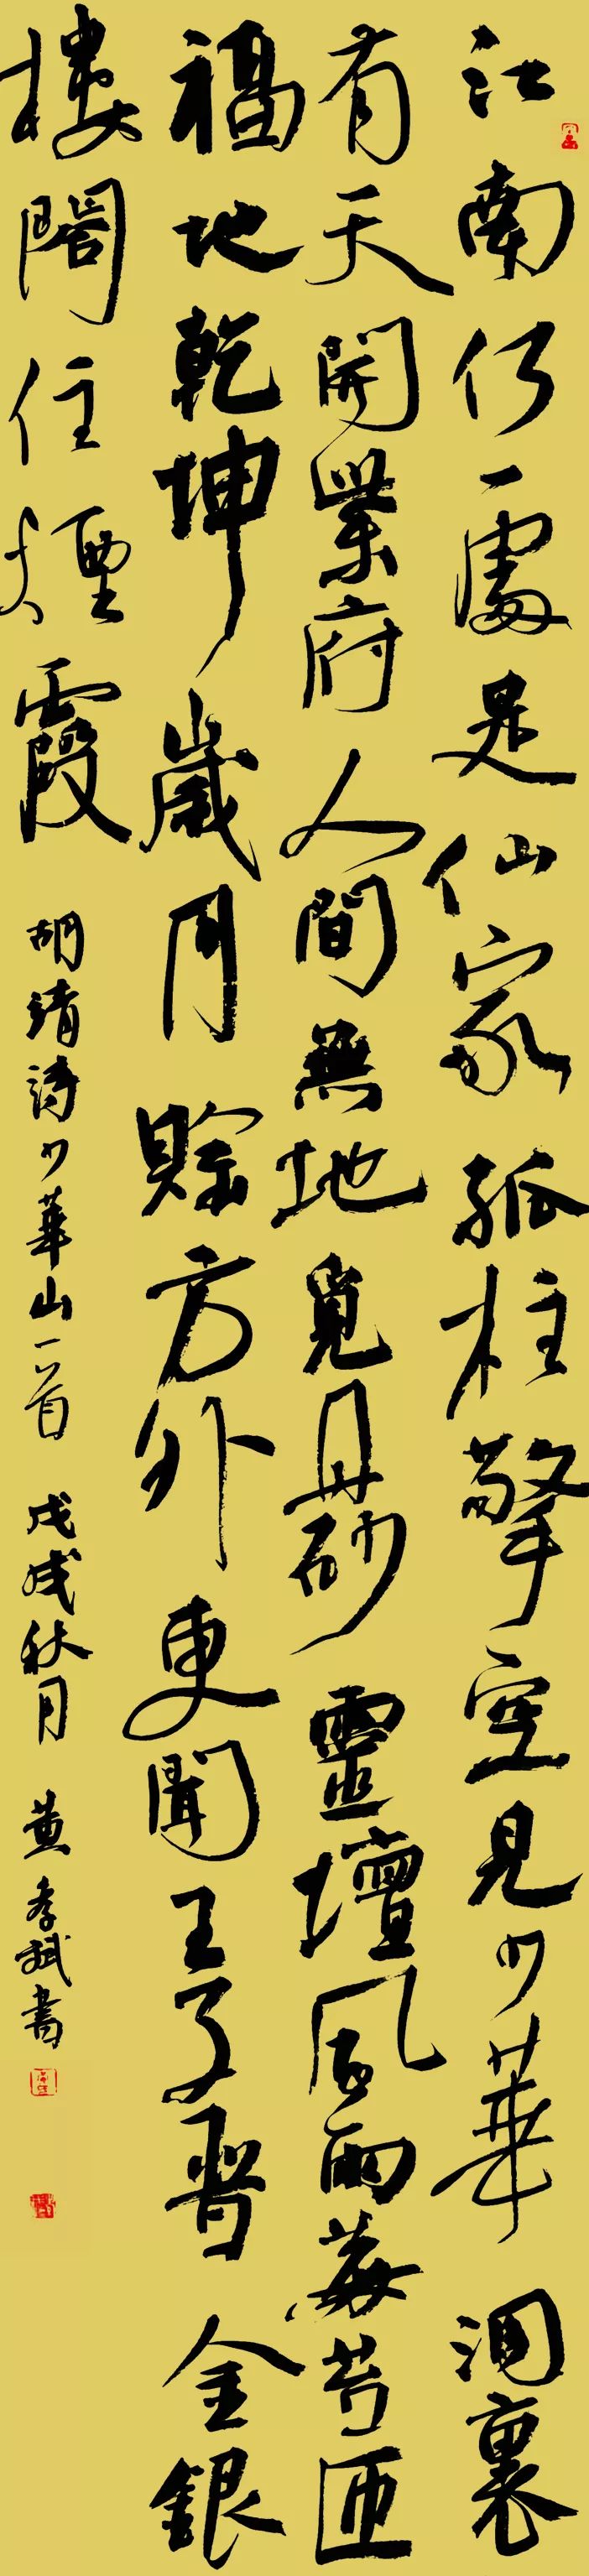 江南何處是仙家孤柱擎空見少華洞裏
有天開紫府人間無地覓丹砂靈壇風雨莓苔匝
福地乾坤歲月賒方外更聞王子晉金銀
樓閣住煙霞
胡靖詩少華山一首 戊戌秋月 黃孝斌書